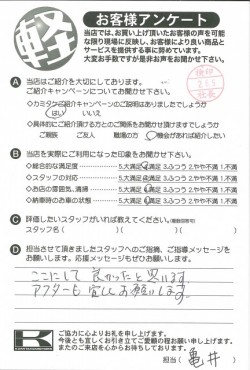 軽
お客様アンケート
当店では、お買い上げ頂いたお客様の声を可能
な限り現場に反映し、お客様により良い商品と
サービスを提供する事に努めています。
大変お手数ですが是非お声をお聞かせ下さい。
A 当店はご紹介を大切にしております。
ご紹介キャンペーンについてお聞かせ下さい。
◇カミタケご紹介キャンペーンのご説明はありましたでしょうか
はい いいえ
◇具体的にご紹介頂ける方とのご関係をお聞かせ頂けますでしょうか
ご親族 ご友人 職場の方 機会があれば紹介したい
B 当店を実際にご利用になった印象をお聞かせ下さい。
◇総合的な満足度 5.大満足 4.満足 3.ふつう 2.やや不満 1.不満
◇スタッフの対応 5.大満足 4.満足 3.ふつう 2.やや不満 1.不満
◇お店の雰囲気、清掃 5.大満足 4.満足 3.ふつう 2.やや不満 1.不満
◇納車時のお車の状態 5.大満足 4.満足 3.ふつう 2.やや不満 1.不満
C 評価したいスタッフがいれば教えてください。(複数回答可)
スタッフ名( )( )( )
D 担当させて頂きましたスタッフへのご指摘、ご指導メッセージを
お願いします。応援メッセージもぜひお願いします。
ここにして良かったと思います。
アフターも宜しくお願いします。
K
ご協力に心よりお礼を申し上げます。
今後とも宜しくお引き立てご愛顧の程お願い申し上げます。
またのご来店を心からお待ちしております。
担当( 亀井 )